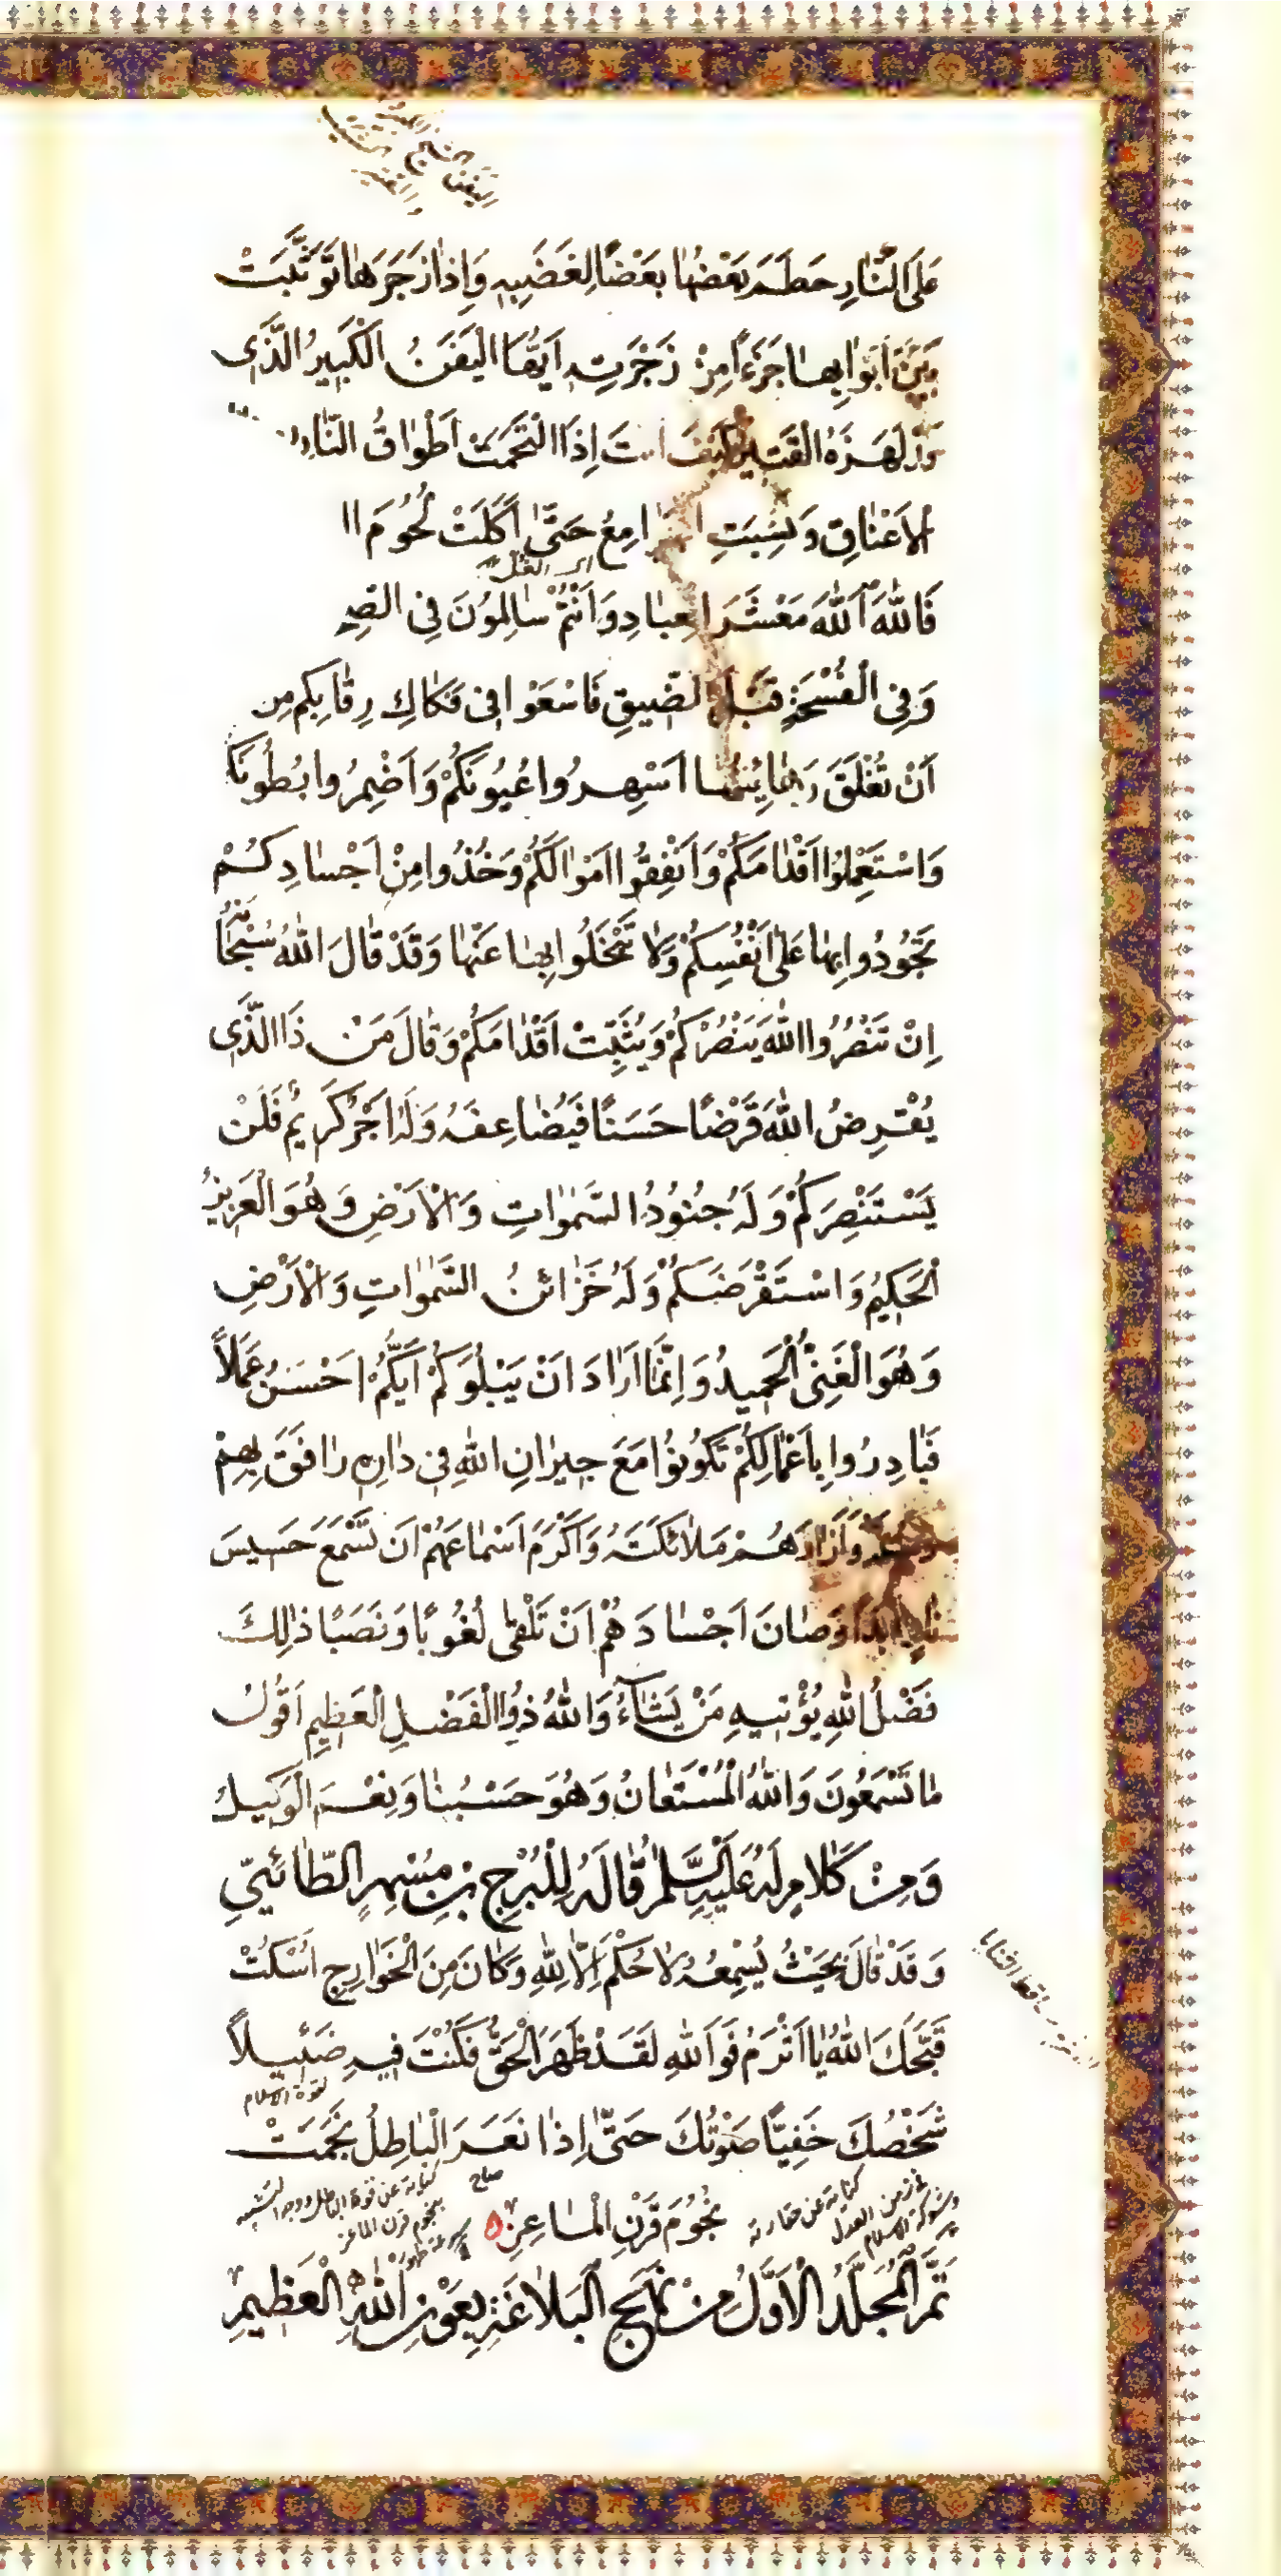 عَلَى النَّارِ حَطَمَ بَعْضُهَا بَعْضًا لِغَضَبِهِ وَاِذَا زَجَرَهَا تَوَثَّبَتْ
بَيْنَ اَبْوَابِهَا جَزَعًا مِنْ زَجْرَتِهِ اَيُّهَا الْيَفَنُ الْكَبِيرُ الَّذِى
قَدْ لَهَزَهُ الْقَتِيرُ كَيْفَ اَنْتَ اِذَا الْتَحَمَتْ اَطْوَاقُ النَّارِ
الْاَعْنَاقِ وَنَشِبَتِ الْجَوَامِعُ حَتَّى اَكَلَتْ لُحُومَ ا
اى الغل
فَاللّٰهَ اَللّٰهَ مَعْشَرَ الْعِبَادِ وَاَنْتُمْ سَالِمُونَ فِى الصِّ
وَفِى الْفُسْحَةِ قَبْلَ الضِّيقِ فَاسْعَوْا فِى فَكَاكِ رِقَابِكُمْ مِن
اَنْ تُغْلَقَ رَهَائِنُهَا اَسْهِرُوا عُيُونَكُمْ وَاَضْمِرُوا بُطُونَكُ
وَاسْتَعْمِلُوا اَقْدَامَكُمْ وَاَنْفِقُوا اَمْوَالَكُمْ وَخُذُوا مِنْ اَجْسَادِكُمْ
تَجُودُوا بِهَا عَلَى اَنْفُسِكُمْ وَلَا تَبْخَلُوا بِهَا عَنْهَا وَقَدْ قَالَ اللّٰهُ سُبْحَانَهُ
اِنْ تَنْصُرُوا اللّٰهَ يَنْصُرْكُمْ وَيُثَبِّتْ اَقْدَامَكُمْ وَقَالَ مَنْ ذَا الَّذِى
يُقْرِضُ اللّٰهَ قَرْضًا حَسَنًا فَيُضَاعِفَهُ وَلَهُ اَجْرٌ كَرِيمٌ فَلَنْ
يَسْتَنْصِرَكُمْ وَلَهُ جُنُودُ السَّمٰوَاتِ وَالْاَرْضِ وَهُوَ الْعَزِيزُ
الْحَكِيمُ وَاسْتَقْرَضَكُمْ وَلَهُ خَزَائِنُ السَّمٰوَاتِ وَالْاَرْضِ
وَهُوَ الْغَنِىُّ الْحَمِيدُ وَاِنَّمَا اَرَادَ اَنْ يَبْلُوَكُمْ اَيُّكُمْ اَحْسَنُ عَمَلًا
فَبَادِرُوا بِاَعْمَالِكُمْ تَكُونُوا مَعَ جِيرَانِ اللّٰهِ فِى دَارِهِ رَافَقَ بِهِمْ
وَاَزَارَهُمْ مَلَائِكَتَهُ وَاَكْرَمَ اَسْمَاعَهُمْ اَنْ تَسْمَعَ حَسِيسَ
نَارٍ اَبَدًا وَصَانَ اَجْسَادَهُمْ اَنْ تَلْقَى لُغُوبًا وَنَصَبًا ذٰلِكَ
فَضْلُ اللّٰهِ يُؤْتِيهِ مَنْ يَشَآءُ وَاللّٰهُ ذُو الْفَضْلِ الْعَظِيمِ اَقُولُ
مَا تَسْمَعُونَ وَاللّٰهُ الْمُسْتَعَانُ وَهُوَ حَسْبُنَا وَنِعْمَ الْوَكِيلُ
وَمِنْ كَلَامٍ لَهُ عَلَيْهِ السَّلٰمُ قَالَهُ لِلْبُرْجِ بْنِ مُسْهِرٍ الطَّائِيِّ
وَقَدْ قَالَ بِحَيْثُ يُسْمِعُهُ لَا حُكْمَ اِلَّا لِلّٰهِ وَكَانَ مِنَ الْخَوَارِجِ اُسْكُتْ
قَبَّحَكَ اللّٰهُ يَا اَثْرَمُ فَوَاللّٰهِ لَقَدْ ظَهَرَ الْحَقُّ فَكُنْتَ فِيهِ ضَئِيلًا
لقوة الاسلام
شَخْصُكَ خَفِيًّا صَوْتُكَ حَتَّى اِذَا نَعَرَ الْبَاطِلُ نَجَمْتَ
صاح
كناية عن قوة الباطل ووجه التشبيه
نُجُومَ قَرْنِ الْمَاعِزِ
كناية عن حقارته
بنجوم قرن الماعز
تَمَّ الْمُجَلَّدُ الْاَوَّلُ مِنْ نَهْجِ الْبَلَاغَةِ بِعَوْنِ اللّٰهِ الْعَظِيمِ